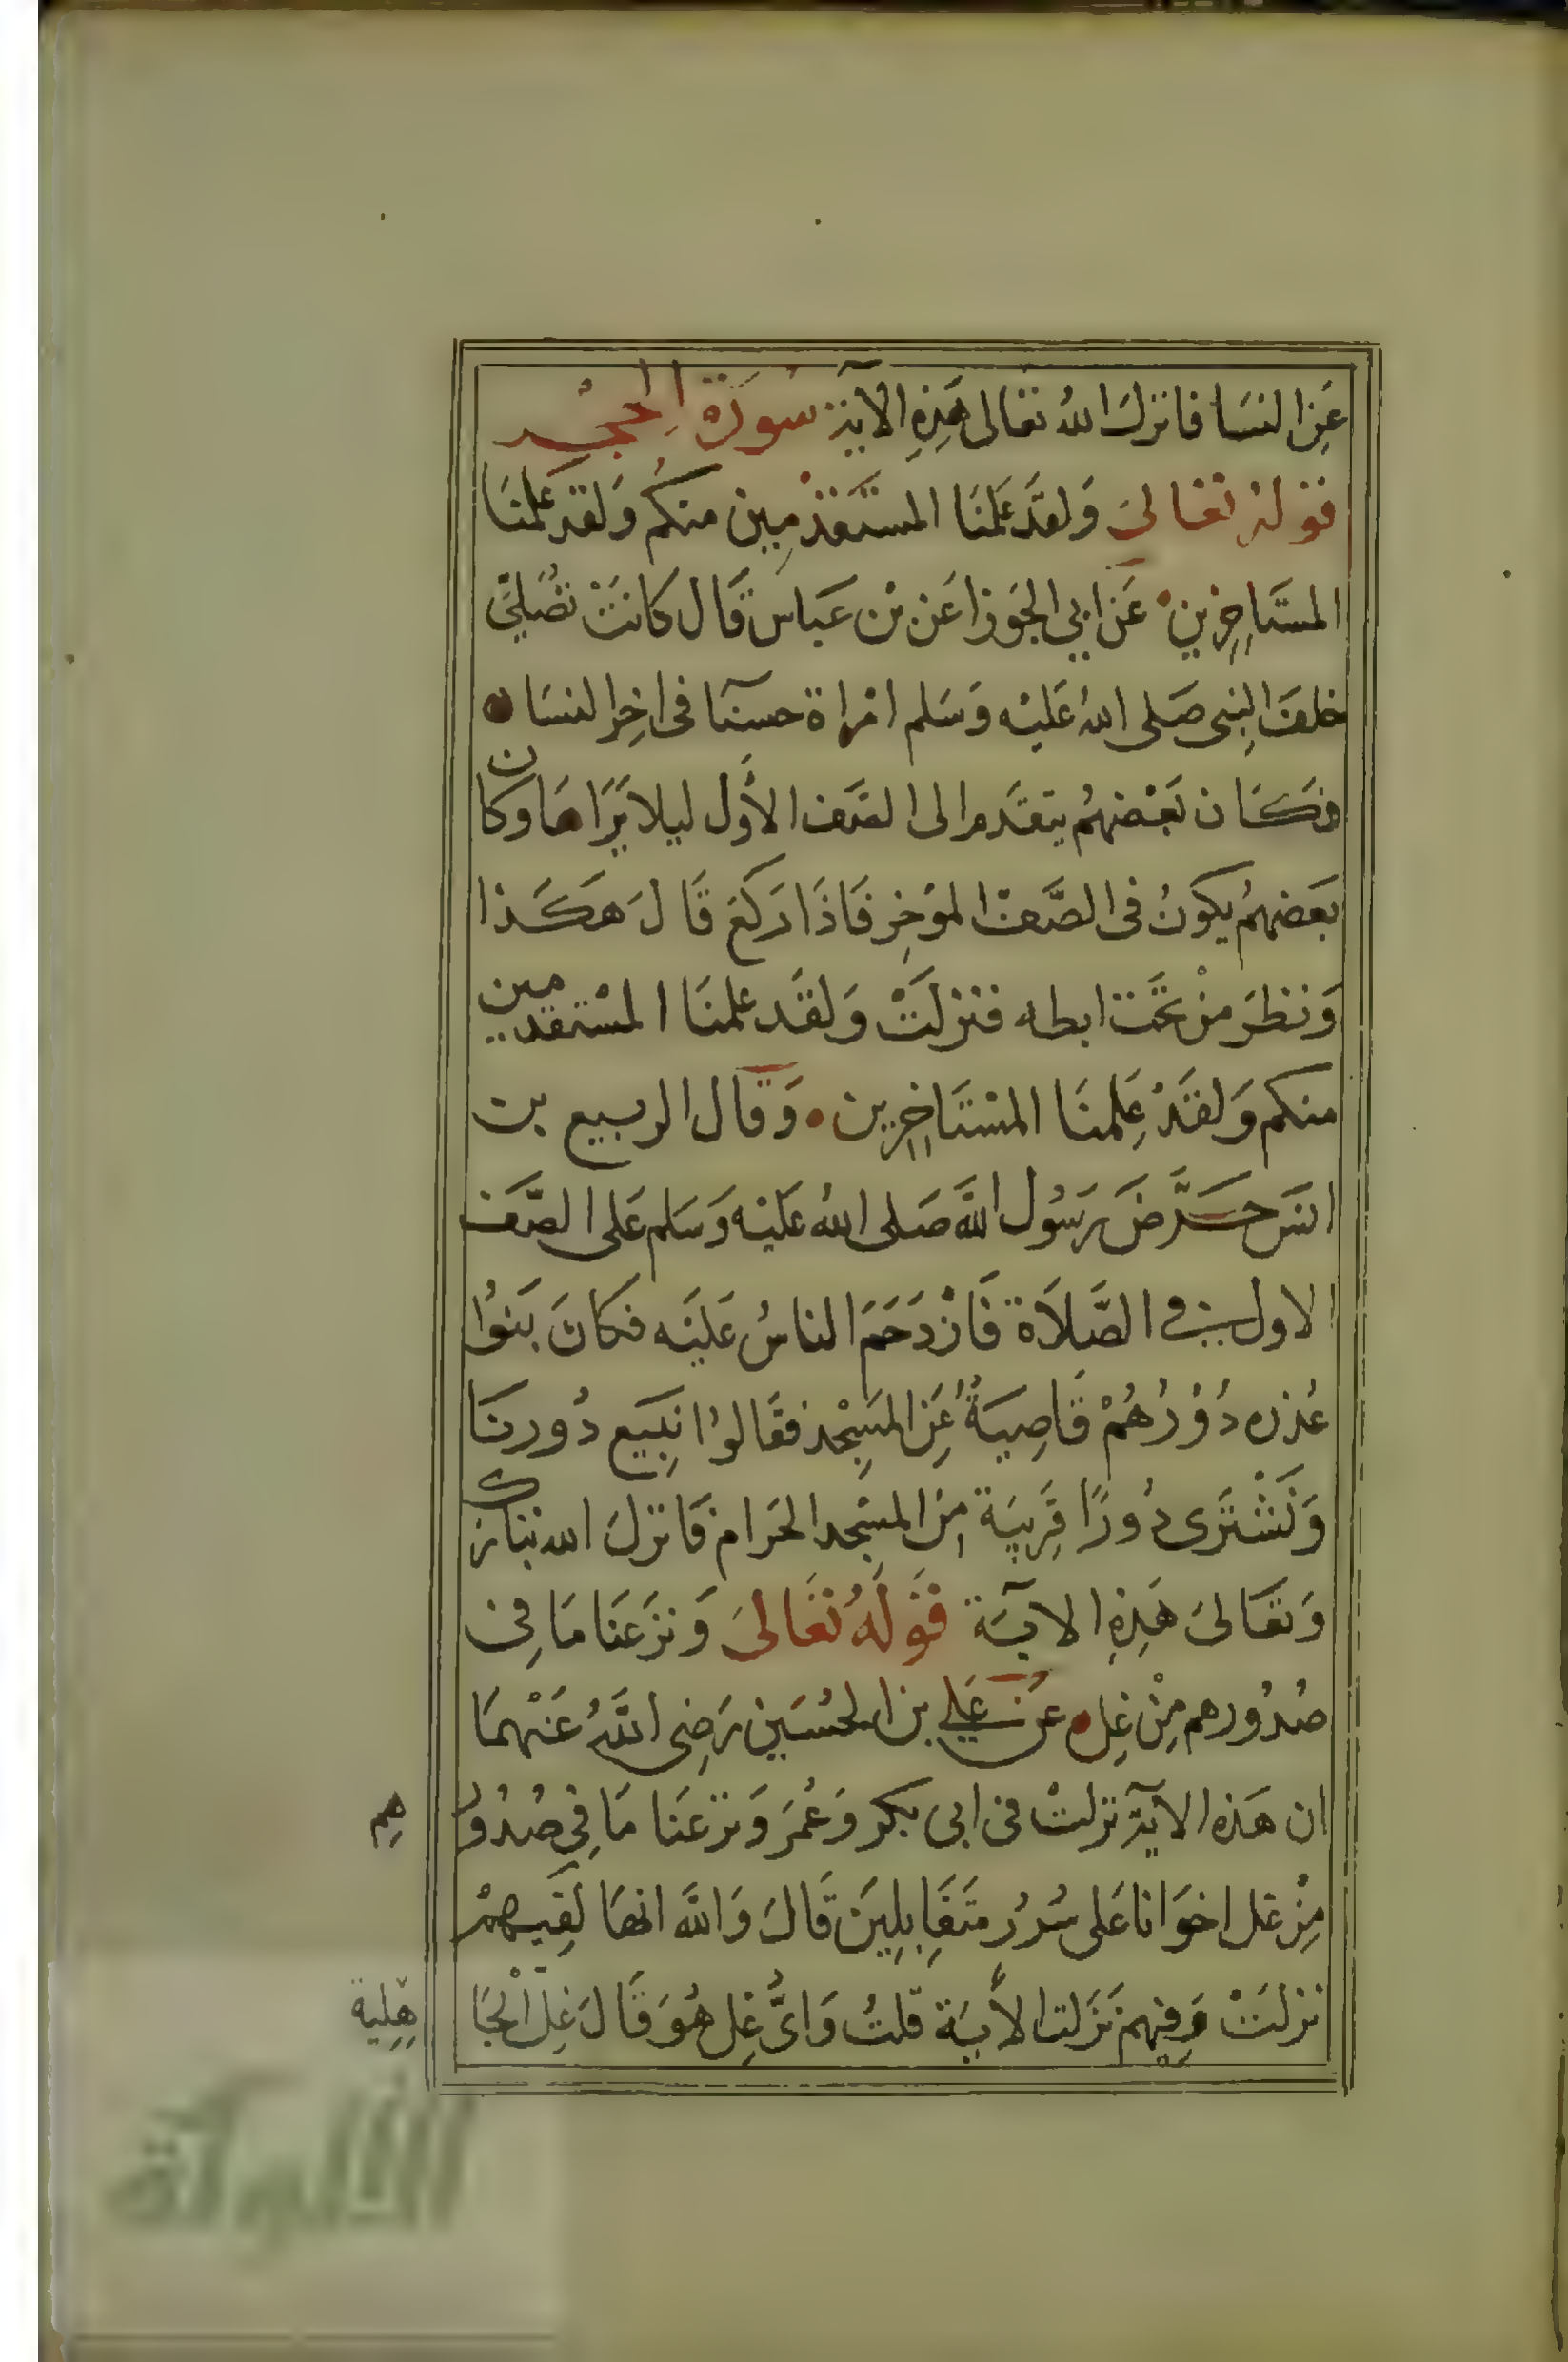 عَنِ النسَا فانزلَ اللهُ تعَالى هَذِهِ الآية سُورَة الحجر
قولهُ تعَالىَ وَلقَد عَلمنَا المستَقدْمِين منكم وَلقد عَلمنَا
المستَاخِرين عَن ابي الجَوزا عَن بْن عَباس قَال كانَتْ تصُلي
خلفَ النبِى صَلى اللهُ عَليْه وَسَلم امْراة حسنَآ فى اخِر النسَا
فكَان بَعْضهُم يتقَدم الى الصَف الأَول ليلا يَرَاهَا وكان
بَعَضهمُ يكونُ فى الصَّف المؤخِر فَاذَا رَكعَ قَالَ هَكَذا
وَنظرَ منْ تَحَت ابطه فنزلَتْ وَلقَد علمنَا المسْتقدمين
منكم وَلقَدْ عَلِمنَا المسْتَاخِرين وَقَال الربيع بن
انَس حَرَّضَ رَسُول اللَّه صَلى اللهُ عَليْه وَسَلم عَلى الصَّف
الاول في الصَّلاَة فَازْدَحَمَ الناسُ عَليَه فكانَ بَنوُا
عُذره دُوْرُهُمْ قَاصِيَةُ عَنِ المَسِجْد فقَالوُا نَبِيَع دُورنَا
وَنَشْتَرَى دُورًا قَرِيبَة مِنَ المسْجِد الحَرام فَانزلَ الله تبارك
وَتعَالىَ هَذِهِ الايَة قَولَهُ تعَالىَ وَنزَعَنا مَا فِى
صُدُورهم مِنْ غِل عَن عَلي بن الحُسَين رَضِى اللَّهُ عَنْهمَا
ان هَذه الآيَة نزلتْ فى ابى بكر وَعُمَر وَنزعَنا مَا فِى صُدُور
هِم
مِنْ غل اخوَانا عَلى سُرُر متَقَابِلِينَ قَالَ وَاللَّه انهَا لَفِيهمْ
نزلتَْ وَفِيهمْ نَزَلت الأَيَة قلتُ وَاىُّ غِل هُوَ قَالَ غِل الْجَا
هِلية
الألوكة